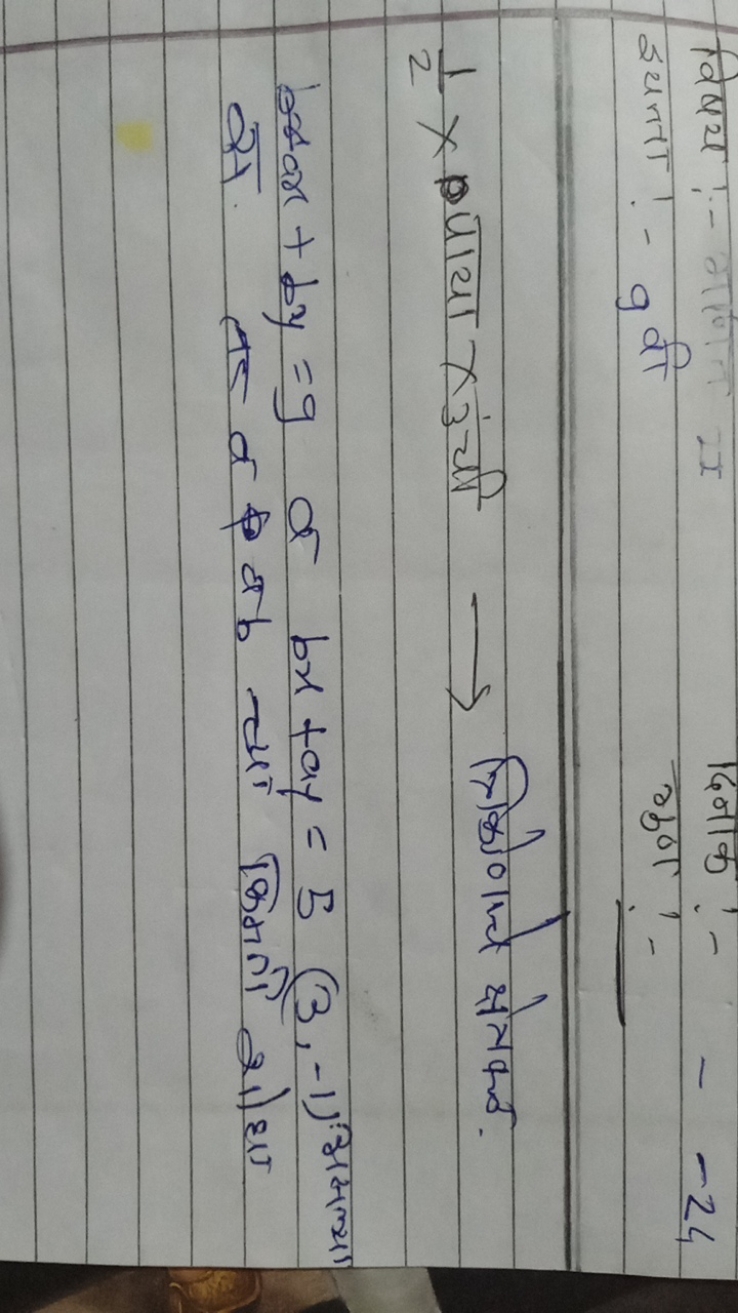 विषय :- गणित II दिनांक :- - -24
इयत्ता :- 9 वी
1/2 × पाया × उंची → त्रिकोणाचे क्षेत्रफळ.
+ by = 9 व bx + ay = 5 (3, -1)
तर व b च्या किमती शोधा